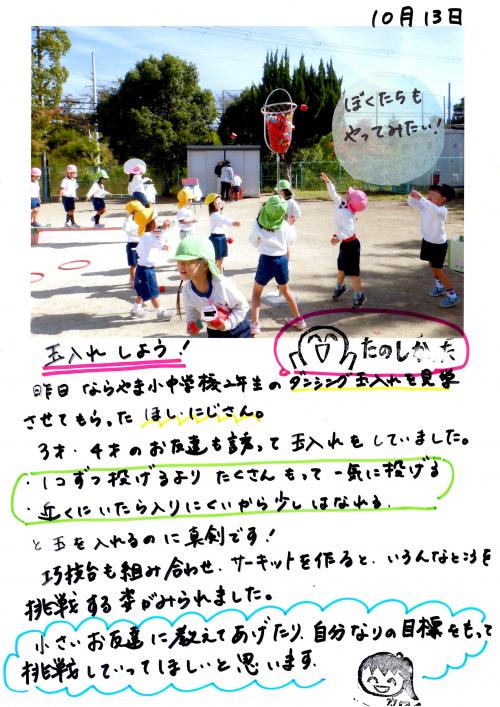 10月13日
ぼくたちも
やってみたい!
玉入れしよう!
たのしかった
昨日 ならやま小中学校2年生の ダンシング玉入れを見学
させてもらった ほし・にじさん。
3才・4才のお友達も誘って玉入れをしていました。
・1コずつ投げるより たくさんもって一気に投げる
・近くにいたら入りにくいから少しはなれる
と玉を入れるのに真剣です!
巧技台も組み合わせ、サーキットを作ると、いろんなところを
挑戦する姿がみられました。
小さいお友達に教えてあげたり、自分なりの目標をもって
挑戦していってほしいと思います。